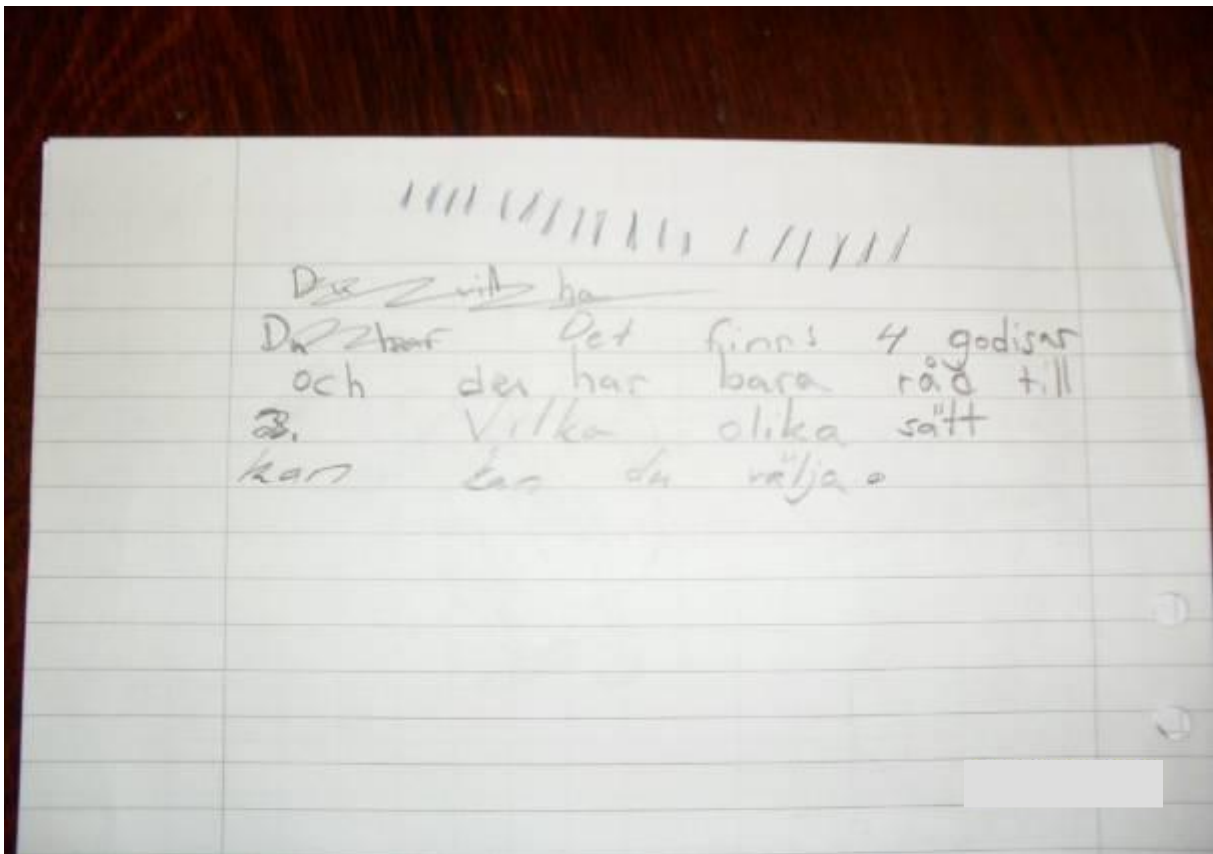 Du vill ha
Du har Det finns 4 godisar
och du har bara råd till
Vilka olika sätt
kan kan du välja.